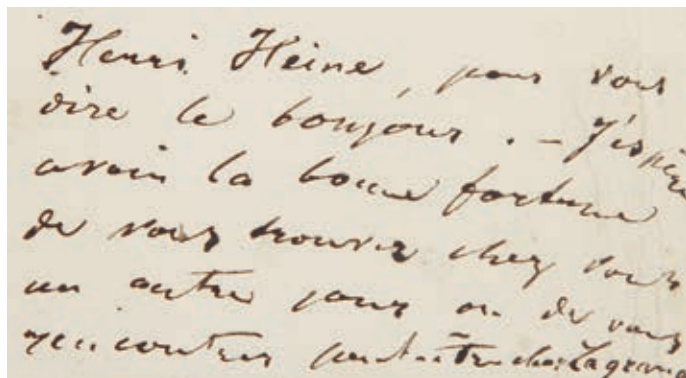 Henri Heine, pour vous
dire le bonjour. – J'espère
avoir la bonne fortune
de vous trouver chez vous
un autre jour ou de vous
rencontrer peut-être chez Lagrang